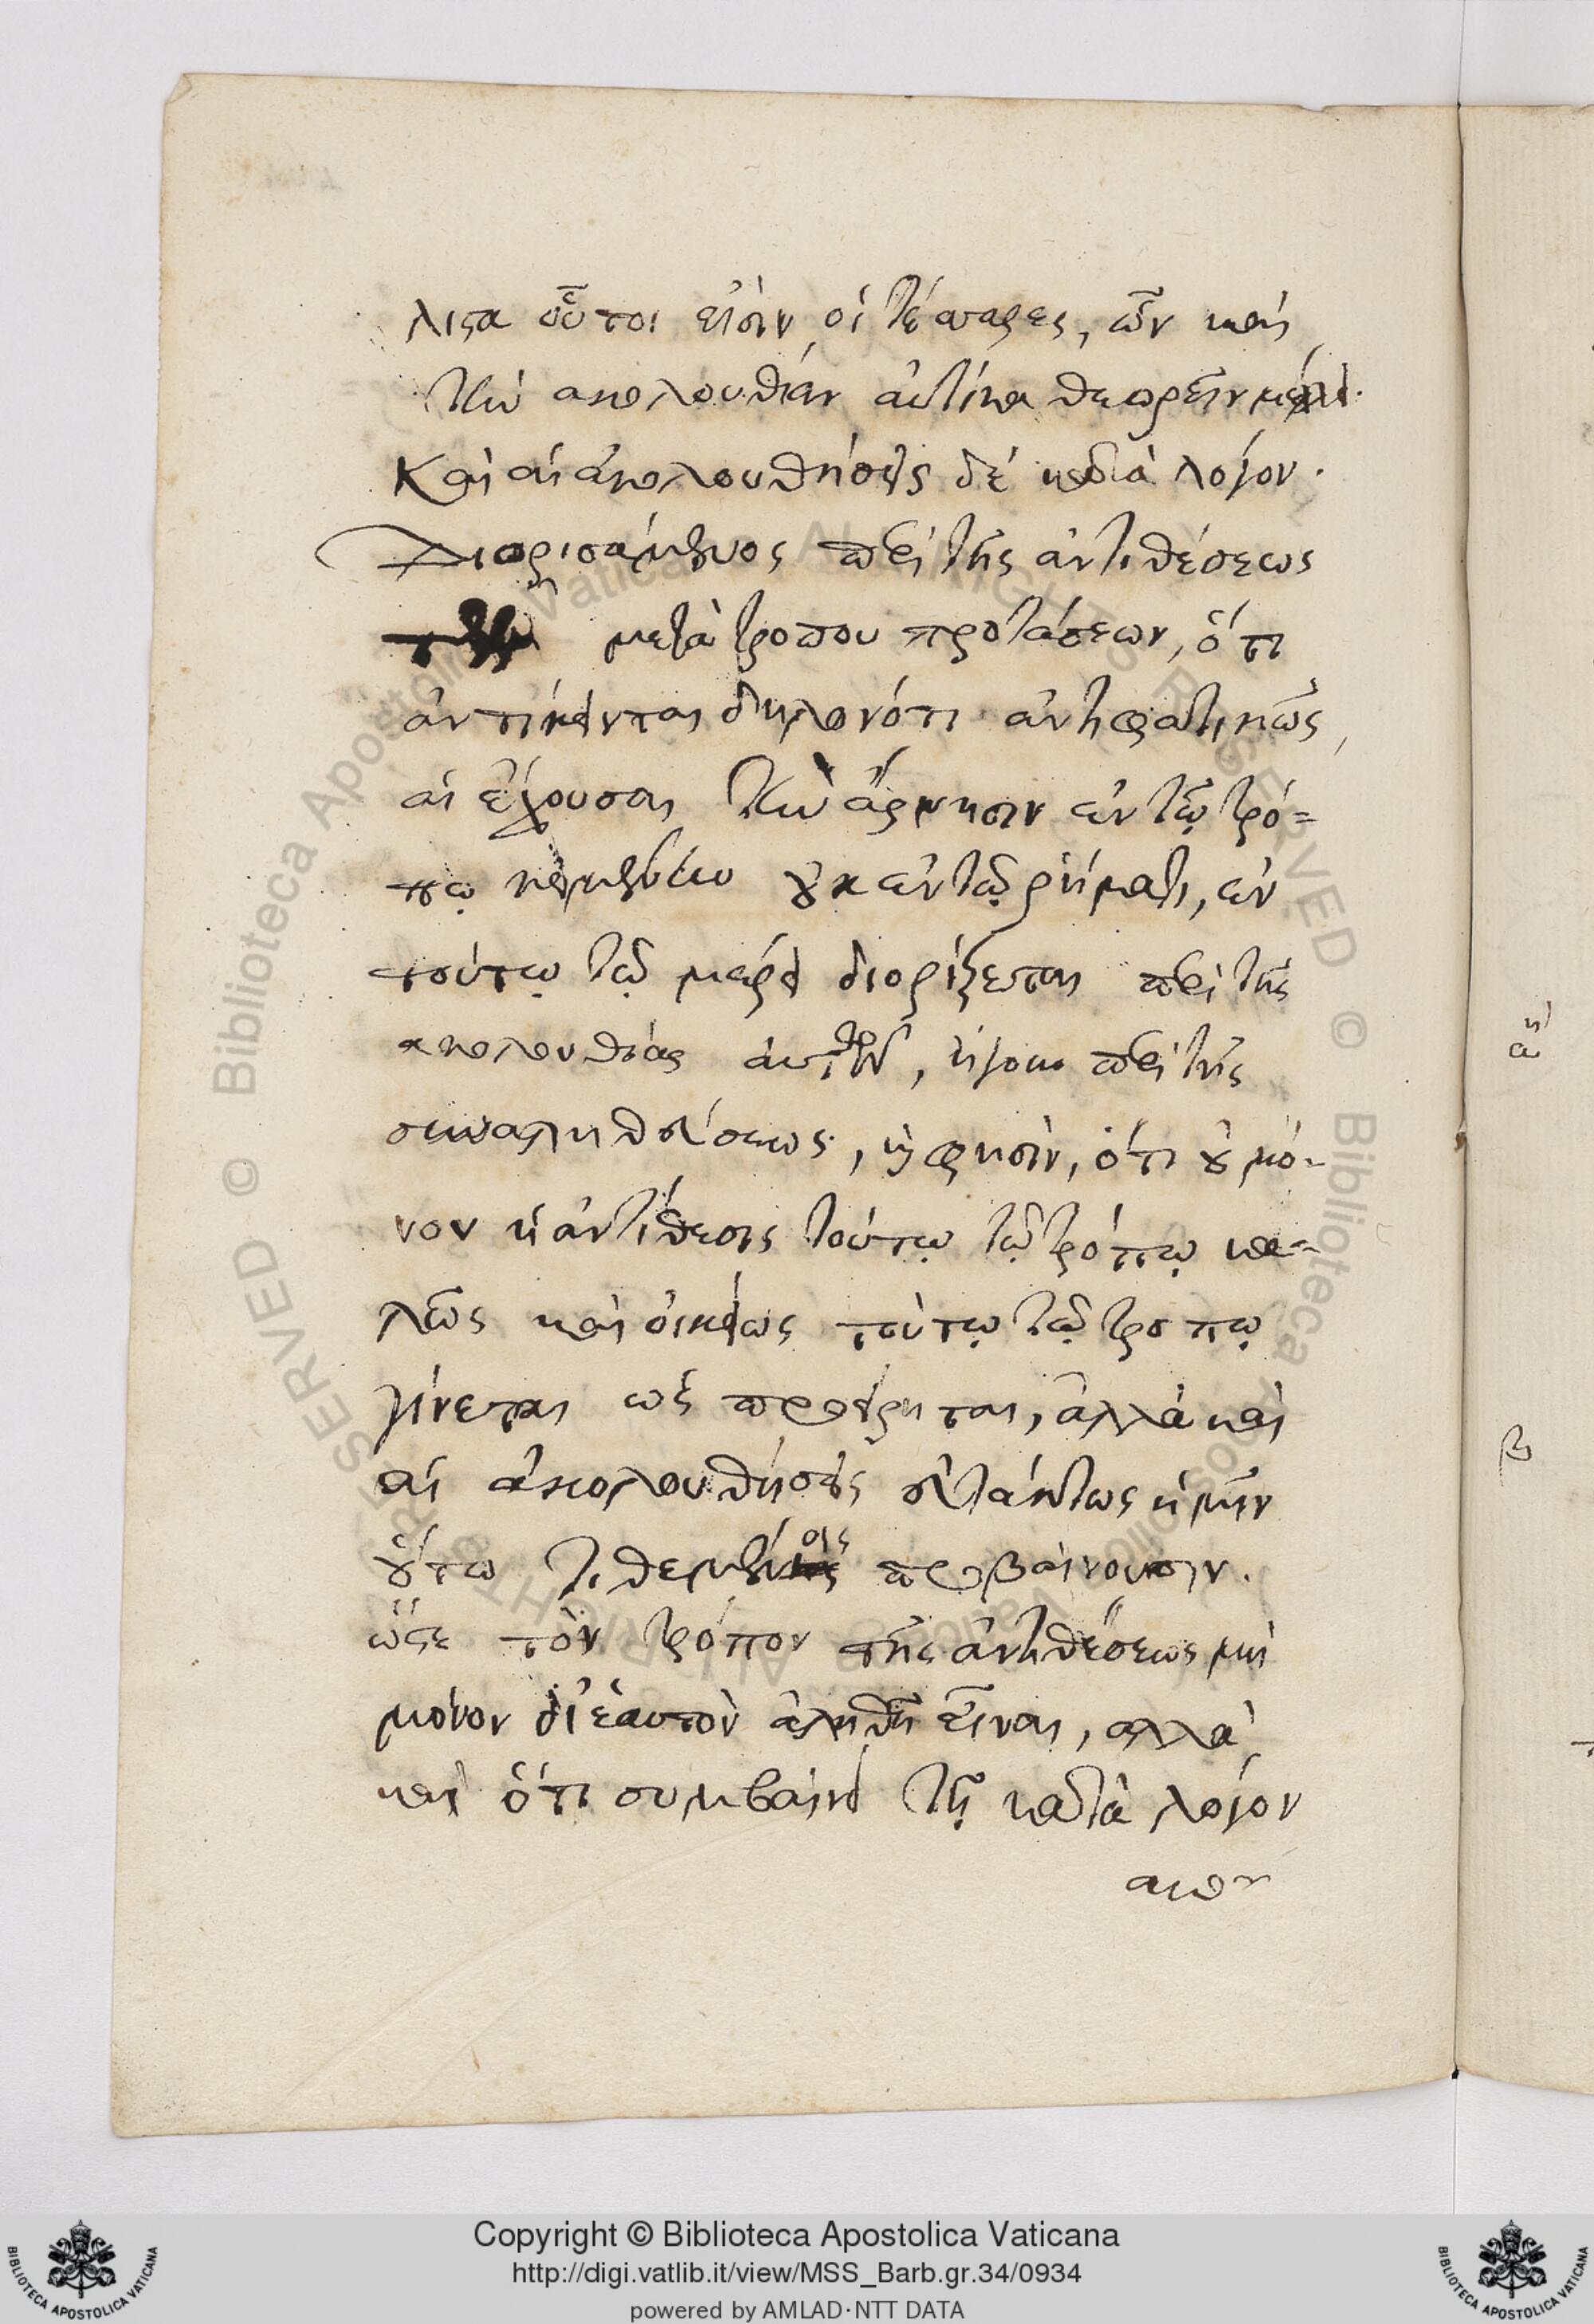 λιστα οὗτοι εἰσὶν οἱ τέσσαρες, ὧν καὶ
τὴν ακολουθίαν αὐτίκα θεωρεῖν μέλλει.
Καὶ αἱ ἀκολουθήσεις δὲ κατὰ λόγον.
Διορισάμενος περὶ τῆς ἀντιθέσεως
μετὰ τροπου προτάσεων, ὅτι
ἀντίκεινται δηλονότι ἀντιφατικῶς,
αἱ ἔχουσαι τὴν ἄρνησιν ἐν τῷ τρό=
πῳ κειμένην οὐκ ἐν τῷ ῥήματι, ἐν
τούτῳ τῷ μέρει διορίζεται περὶ τῆς
ακολουθίας αὐτῶν, ἤγουν περὶ τῆς
συναληθεύσεως, καὶ φησὶν, ὅτι οὐ μό-
νον ἡ ἀντίθεσις τούτῳ τῷ τρόπῳ κα-
λῶς καὶ οἰκείως τούτῳ τῷ τροπῳ
γίνεται ὡς προείρηται, ἀλλὰ καὶ
αἱ ἀκολουθήσεις εὐτάκτως ἡμῖν
οὕτω τιθεμένοις προβαίνουσιν.
ὥστε τὸν τρόπον τῆς ἀντιθέσεως μὴ
μόνον δι' ἑαυτὸν ἀληθῆ εἶναι, αλλὰ
καὶ ὅτι συμβαίνει τῇ κατὰ λόγον
ακο
Copyright © Biblioteca Apostolica Vaticana
http://digi.vatlib.it/view/MSS_Barb.gr.34/0934
powered by AMLAD·NTT DATA